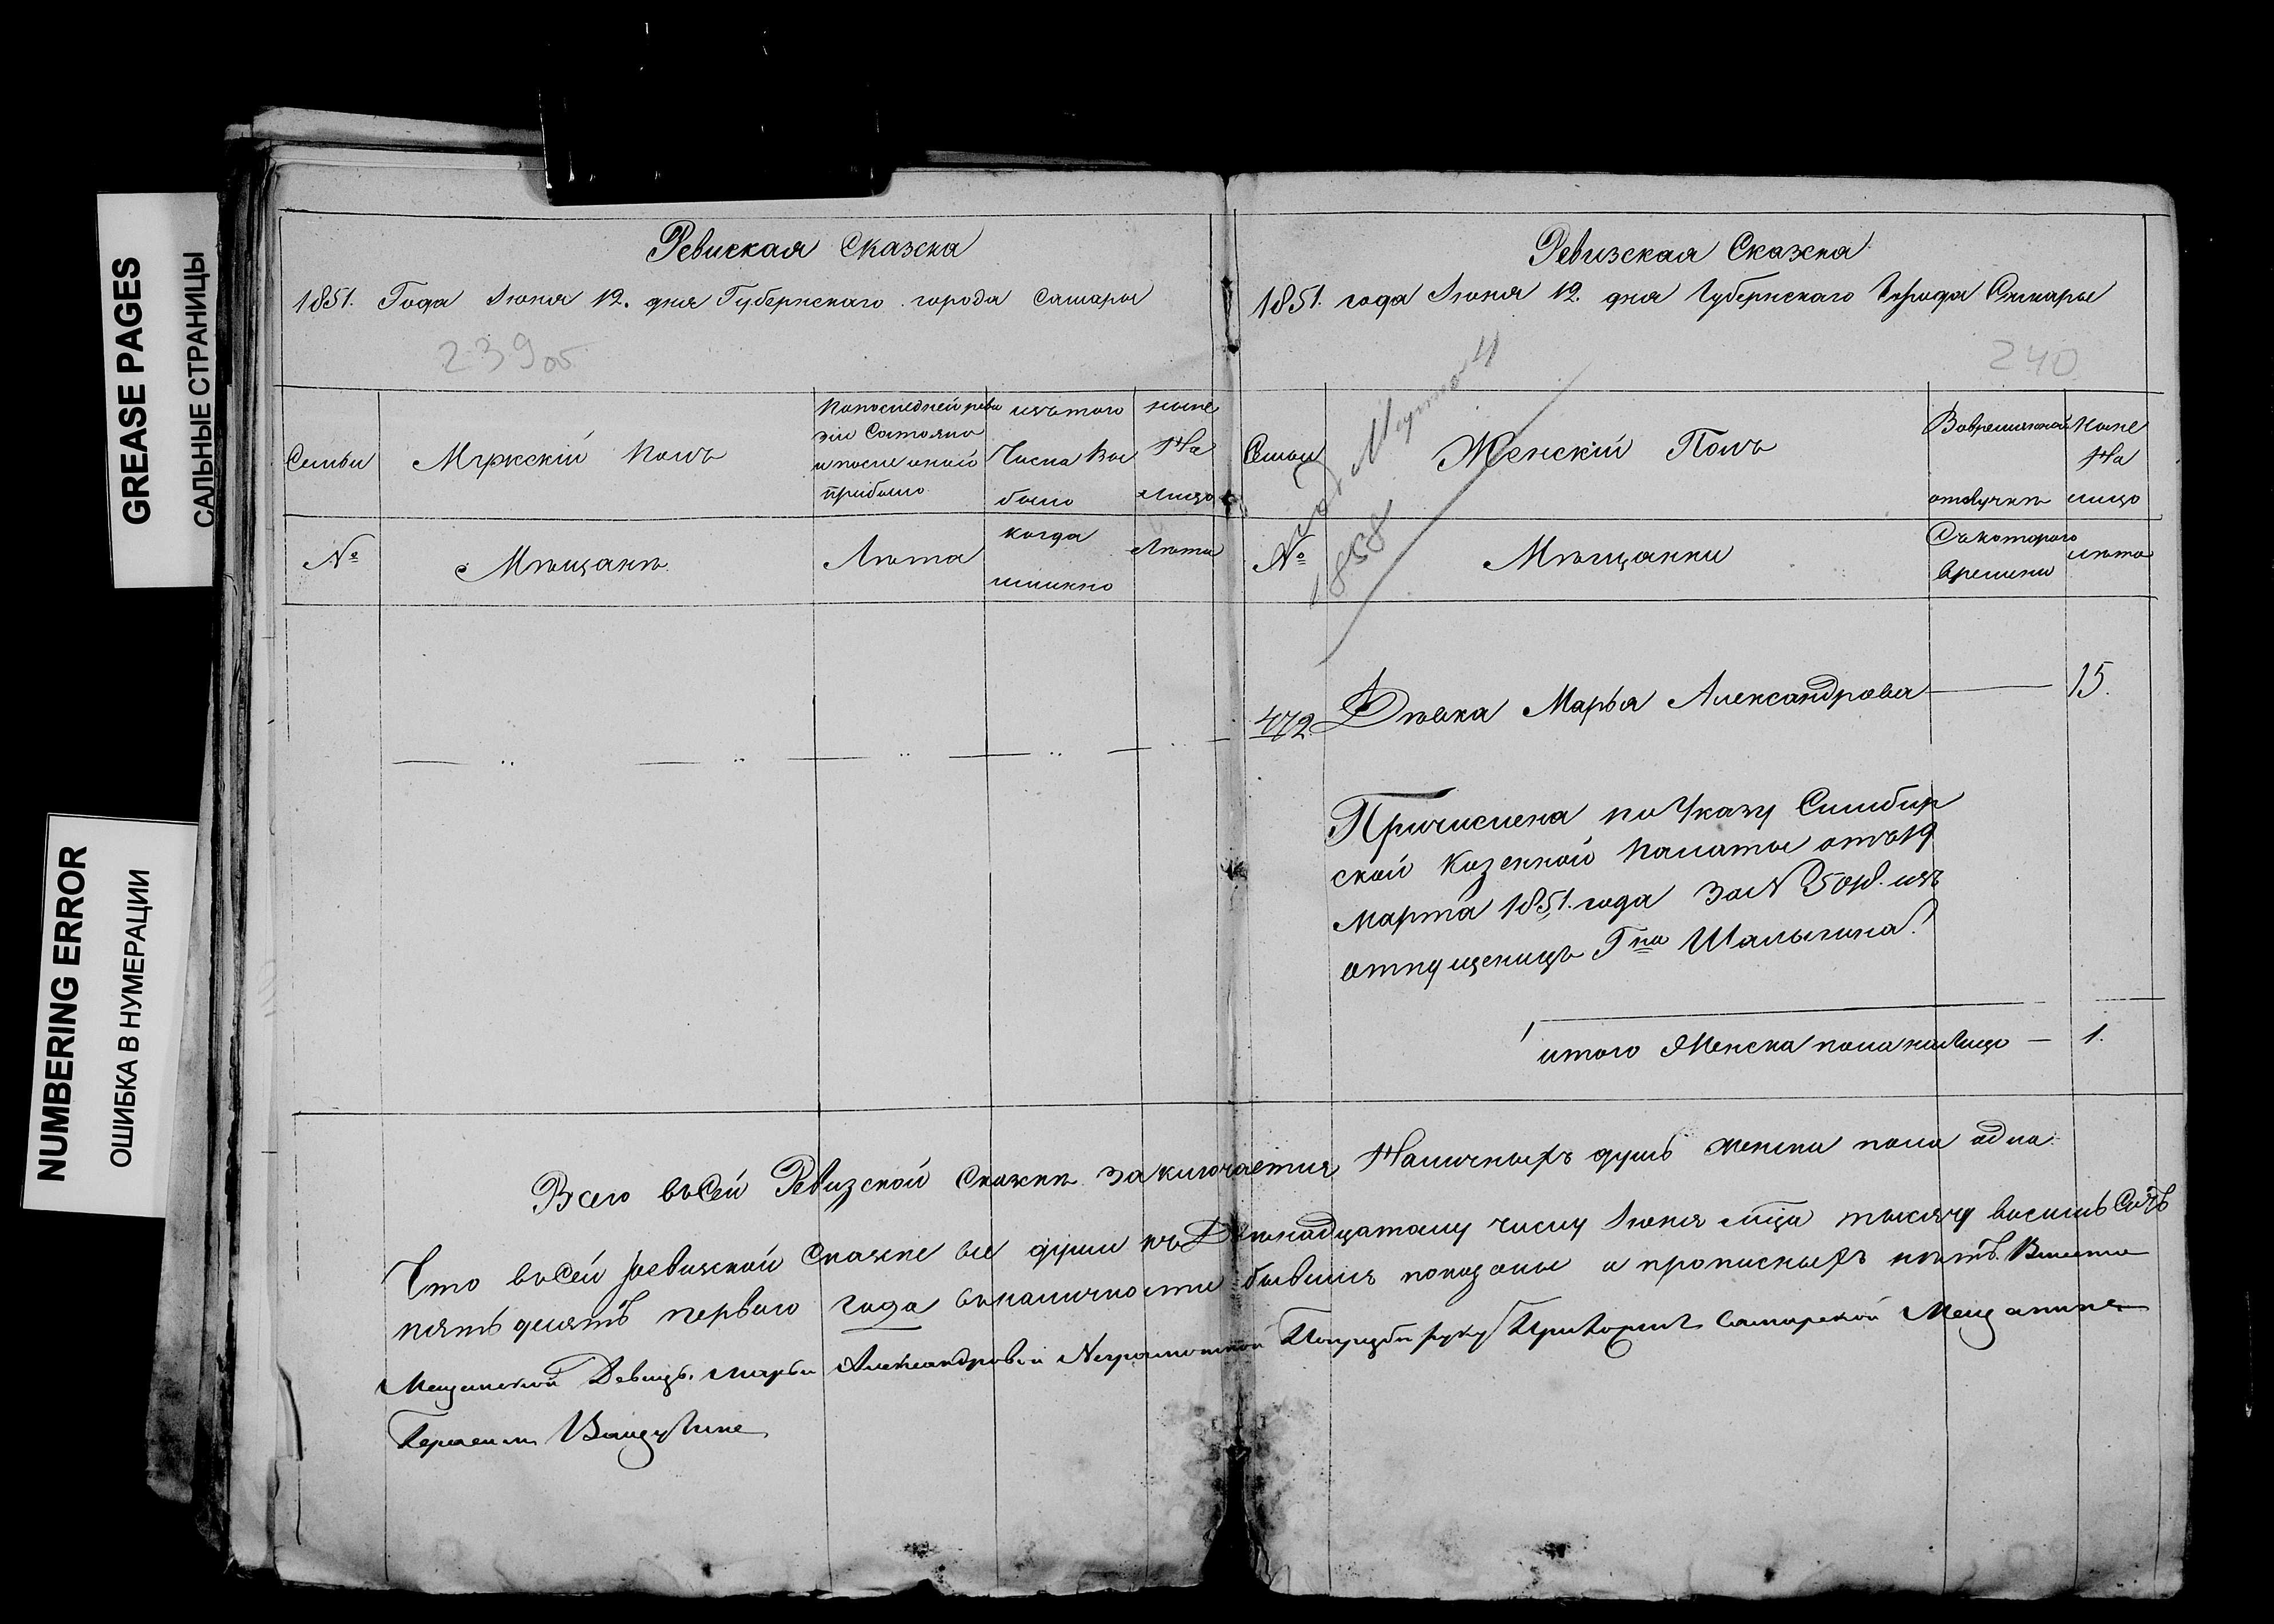 GREASE PAGES
САЛЬНЫЕ СТРАНИЦЫ
NUMBERING ERROR
ОШИБКА В НУМЕРАЦИИ
Ревиская Сказка
1851. Года Июня 12. дня Губернскаго города Самары
239об
Семьи
Мужскій полъ
По последней реви
зіи Состояло
и после оной
прибыло
изъ того
Числа вы
было
ныне
На
лицо
№
Мѣщанѣ
Лѣта
когда
имянно
Лѣта
Ревизская Сказка
1851. года Июня 12. дня Губернскаго Города Самары
240
1858
Семьи
Женскій Полъ
Во временной
отлучкѣ
ныне
На
лицо
№
Мѣщанки
Съ котораго
времени
лѣта
472. Дѣвка Марья Александрова — 15.
Причислена по Указу Симбир
ской Казенной палаты отъ 19
марта 1851. года За № изъ
отпущеницъ Гна Шалыгина.
итого Женска пола на лицо — 1.
Всего въ сей Ревизской Сказкѣ заключается Наличныхъ душъ женска пола одна
Что въ сей ревизской Сказке все души къ Двенадцатому числу Июня мца тысячу восемь Сотъ
пять десятъ перваго года въ наличности бывшия показаны а прописныхъ нѣтъ. Вместо
Мещанской Девицы Марьи Александровой Неграмотной руку Приложилъ Самарской Мещанинъ